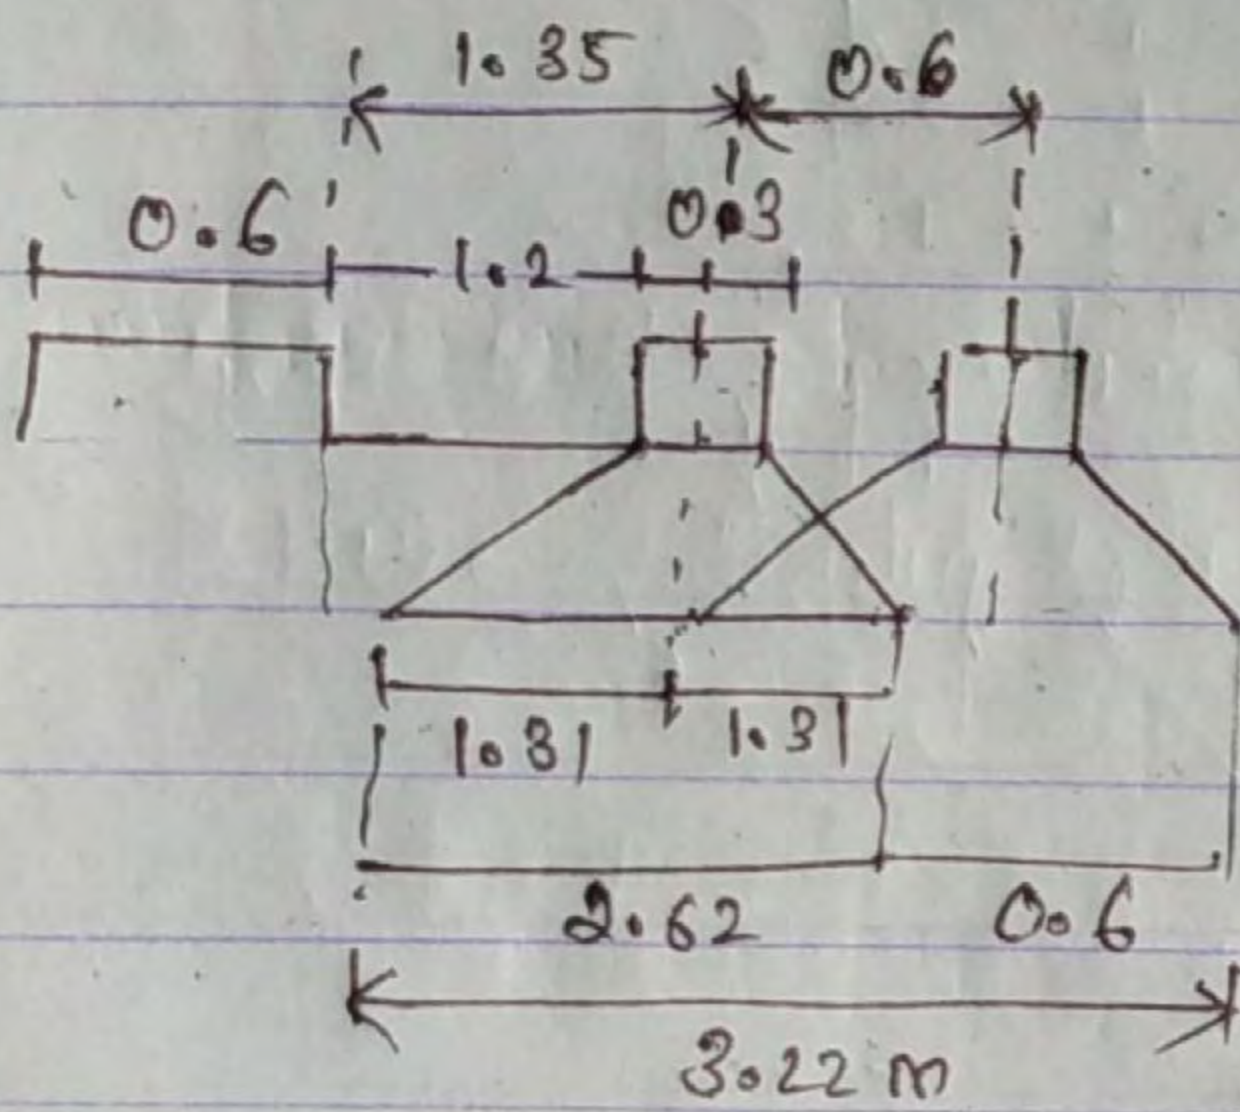 1.35 0.6
0.6 1.2 0.3
1.31 1.31
2.62 0.6
3.22 m